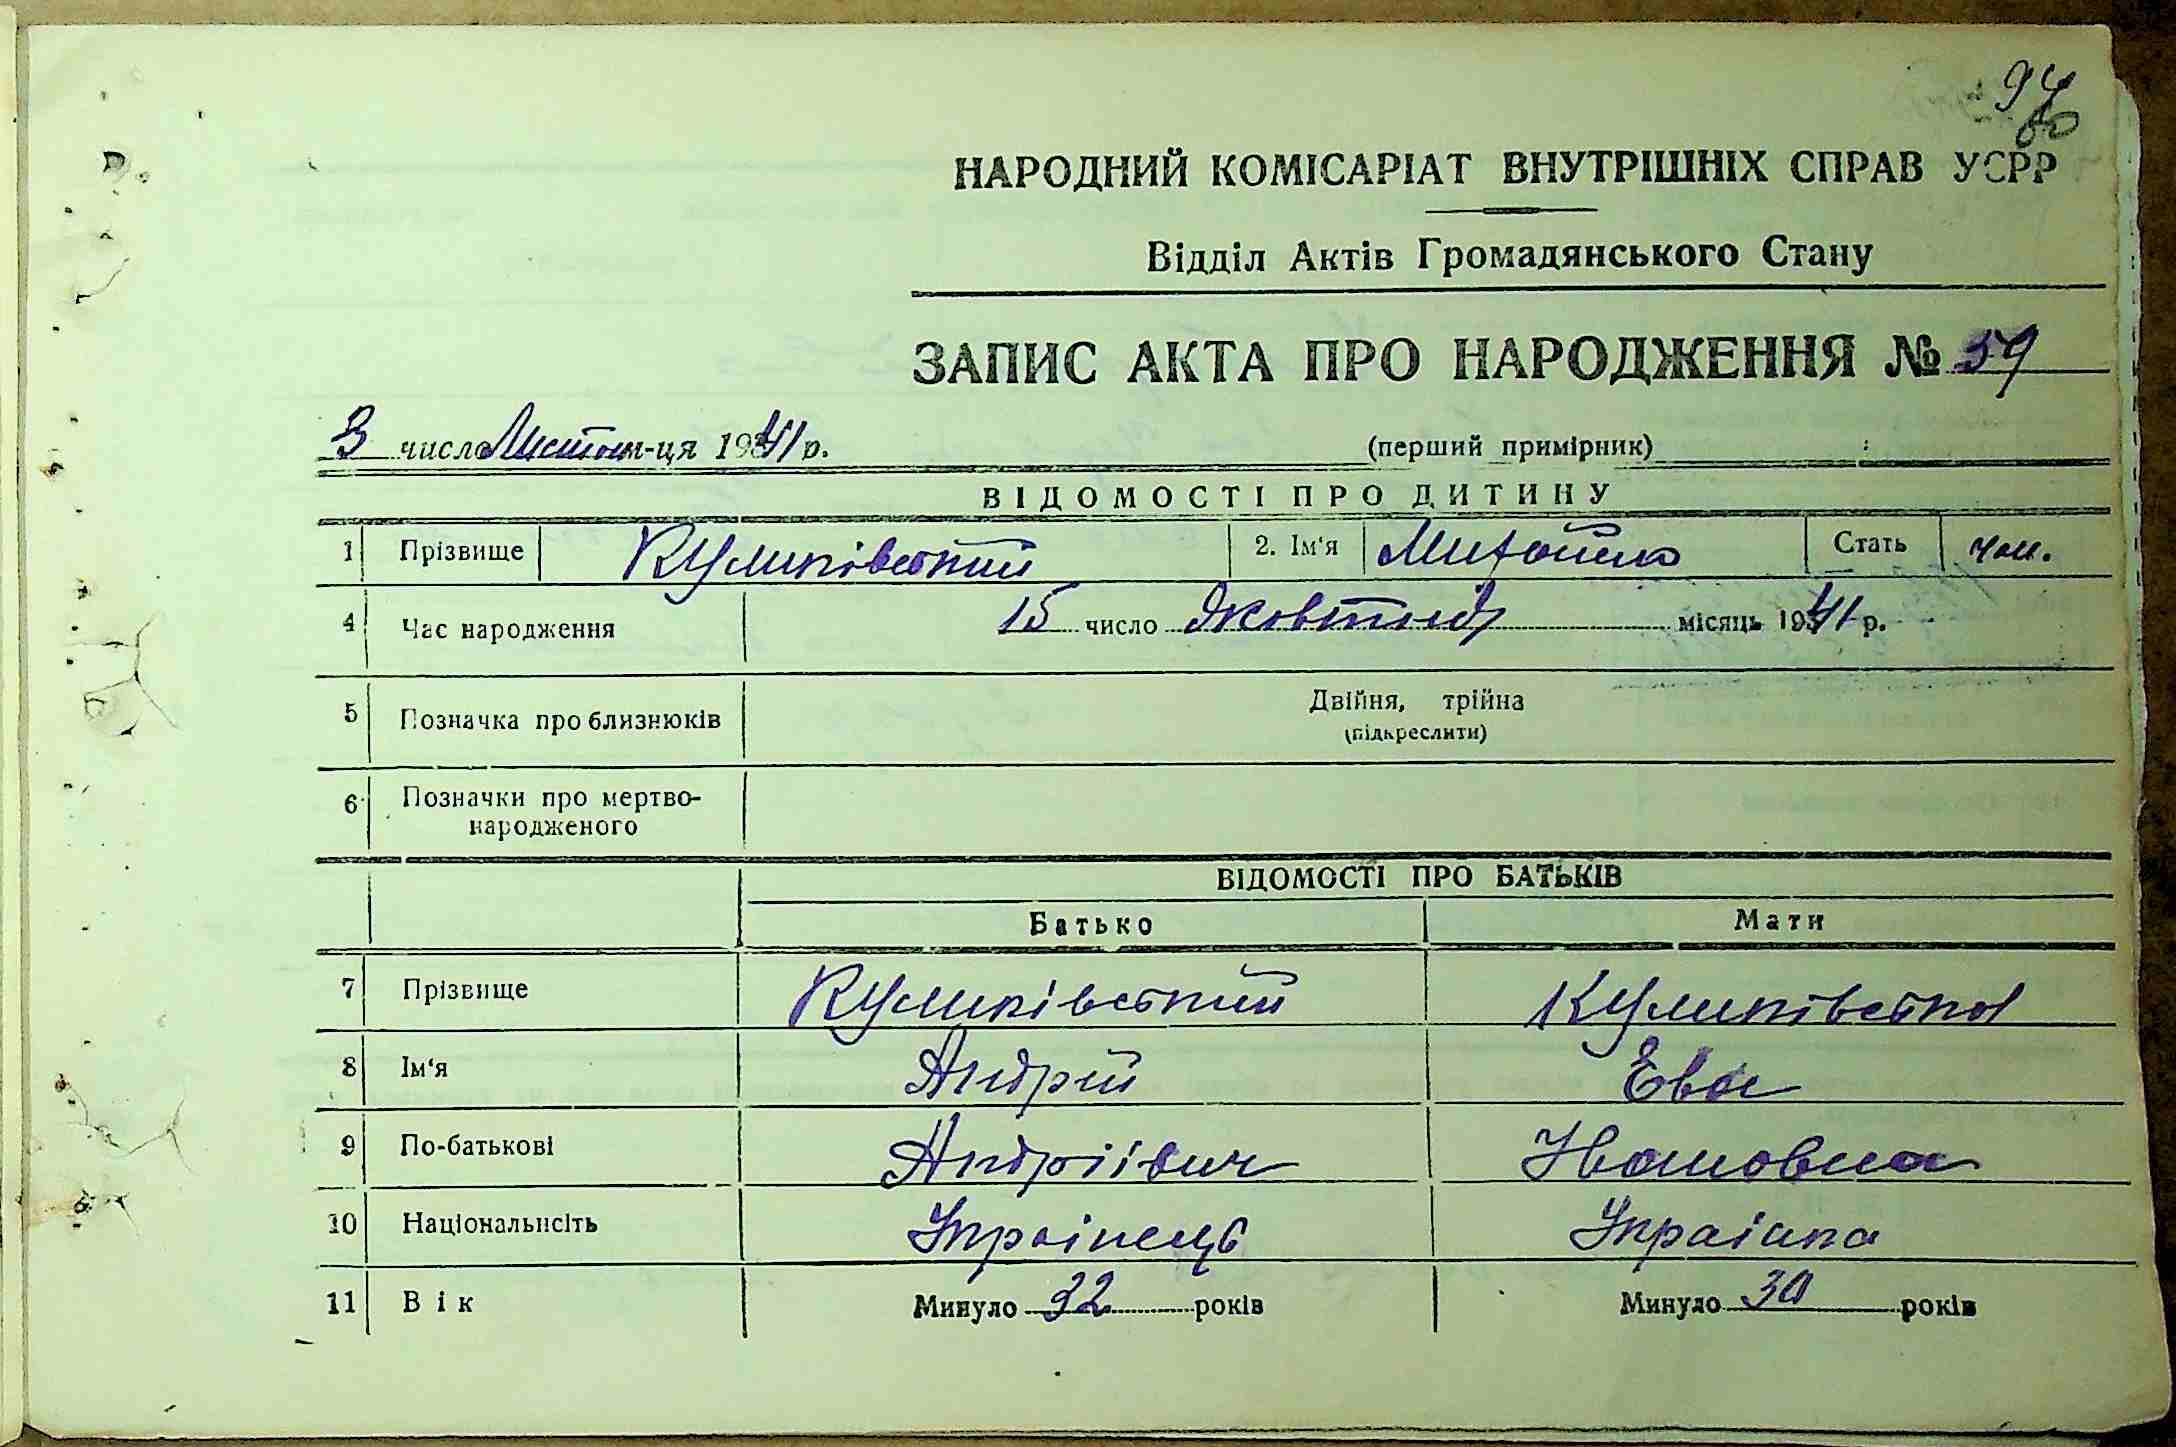 94
НАРОДНИЙ КОМІСАРІАТ ВНУТРІШНІХ СПРАВ УСРР
Відділ Актів Громадянського Стану
ЗАПИС АКТА ПРО НАРОДЖЕННЯ № 59
3 число Листоп м-ця 1941 р. (перший примірник)
ВІДОМОСТІ ПРО ДИТИНУ
1 Прізвище Куликівський 2. Ім'я Михайло Стать чол.
4 Час народження 15 число Жовтня місяць 1941 р.
5 Позначка про близнюків Двійня, трійна
(підкреслити)
6 Позначки про мертво-
народженого
ВІДОМОСТІ ПРО БАТЬКІВ
Батько Мати
7 Прізвище Куликівський Куликівська
8 Ім'я Андрій Ева
9 По-батькові Андріївич Івановна
10 Національнсіть Українець Украінка
11 Вік Минуло 32 років Минуло 30 років